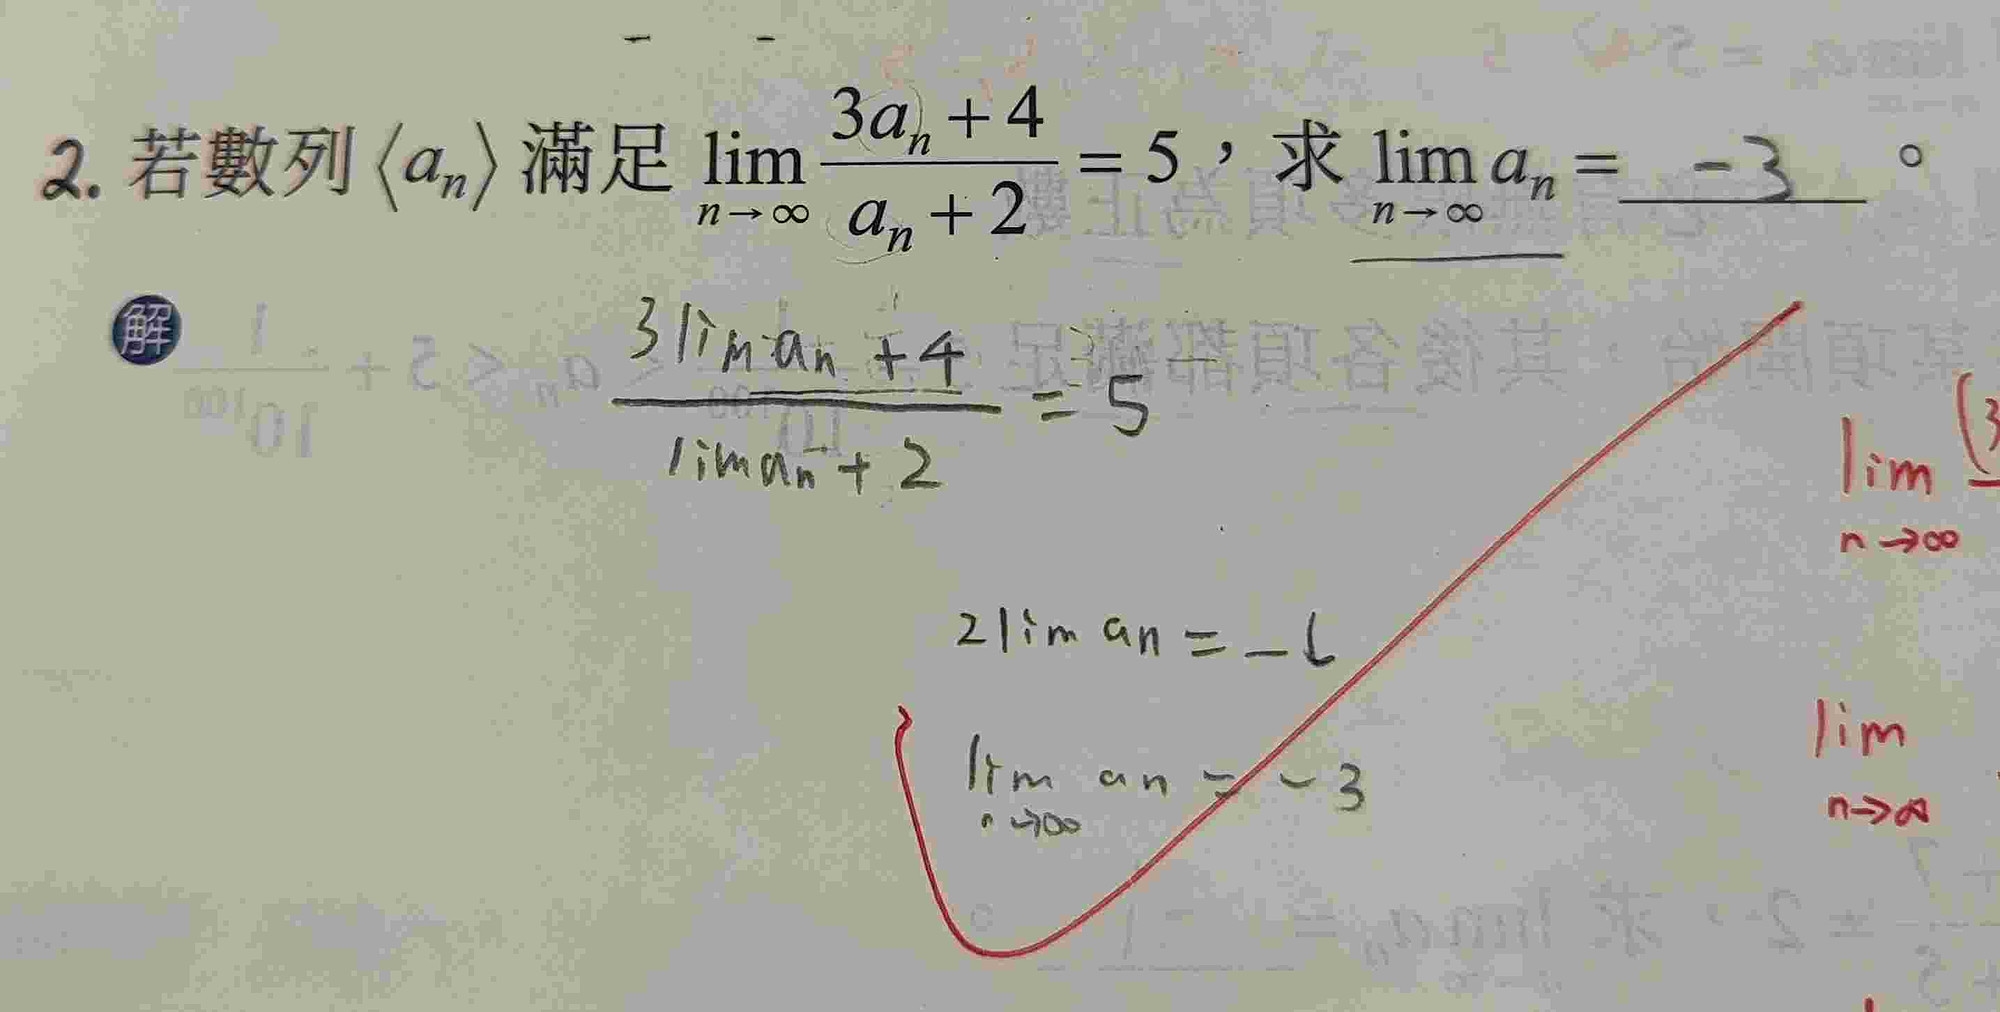 2. 若數列⟨aₙ⟩滿足 lim_{n→∞} (3aₙ + 4)/(aₙ + 2) = 5，求 lim_{n→∞} aₙ = -3 。
解
(3 lim aₙ + 4)/(lim aₙ + 2) = 5
lim (3
n→∞
2 lim aₙ = -6
lim aₙ = -3
n→∞
lim
n→∞